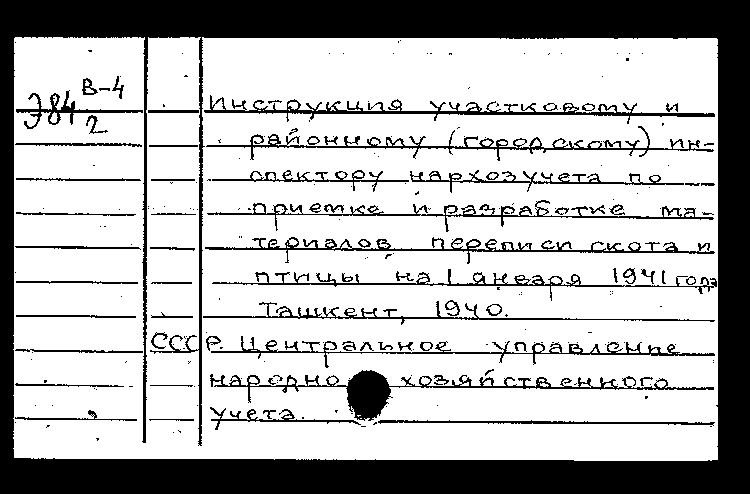 Э84 В-4
2
Инструкция участковому и
районному (городскому) ин-
спектору нархозучета по
приемке и разработке ма-
териалов переписи скота и
птицы на 1 января 1941 года
Ташкент, 1940.
СССР. Центральное управление
народно хозяйственного
учета.